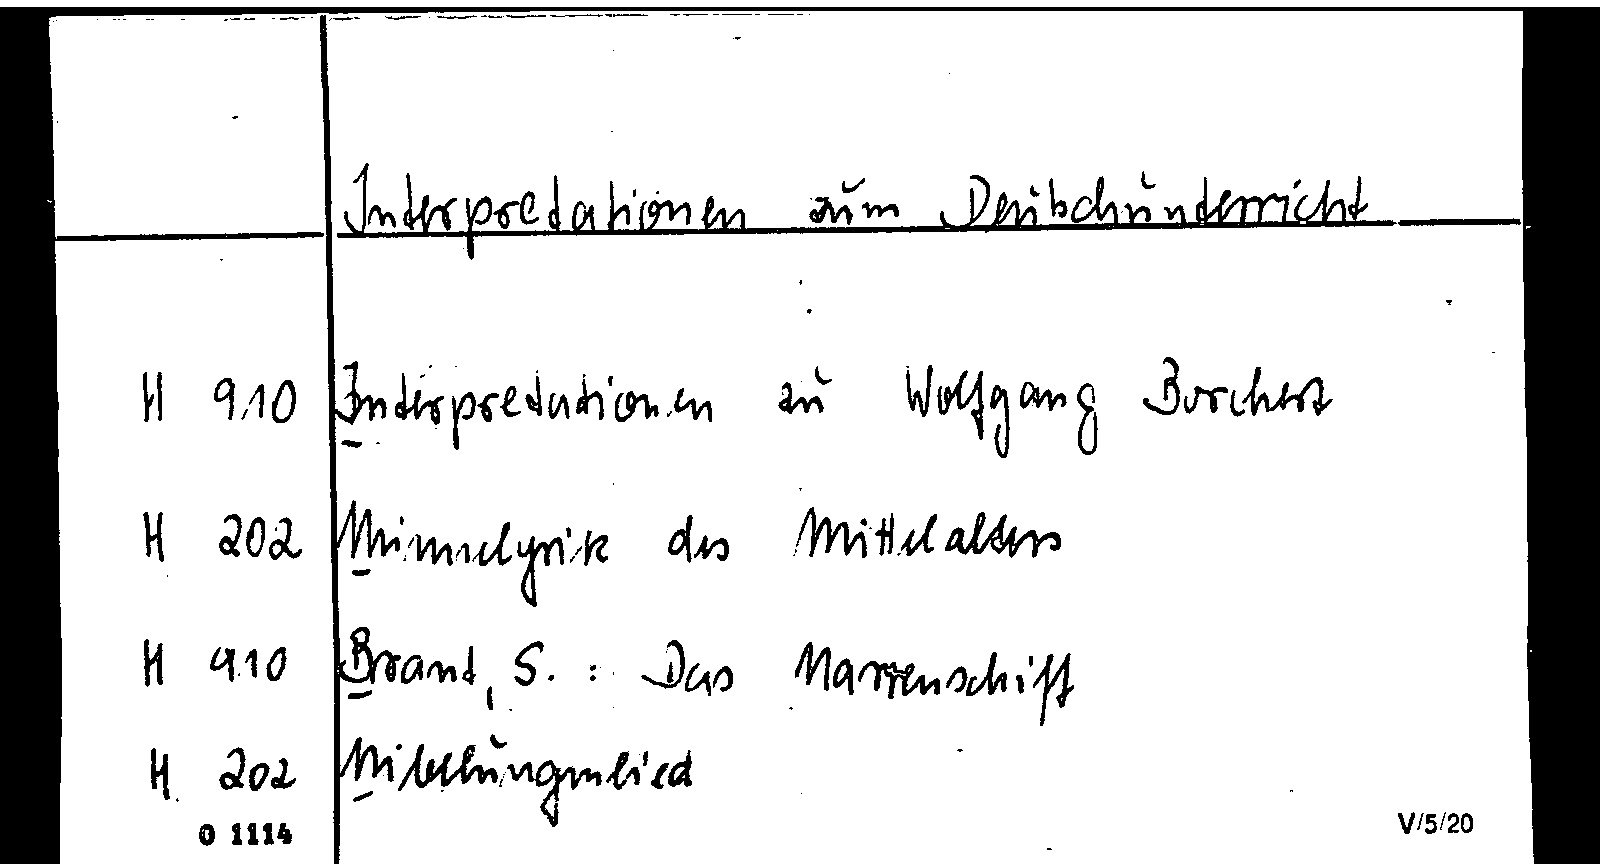 Interpretationen zum Deutschunterricht
H 910 Interpretationen zu Wolfgang Borchert
H 202 Minnelyrik des Mittelalters
H 910 Brand, S. : Das Narrenschiff
H 202 Nibelungenlied
O 1114
V/5/20